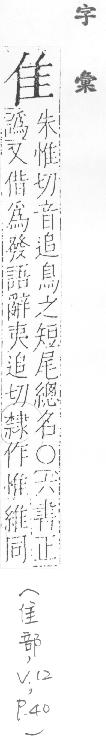 字彙
隹
朱惟切音追鳥之短尾總名○六書正
譌又借爲發語辭夷追切隸作惟維同
(隹部, V.12
P.40)